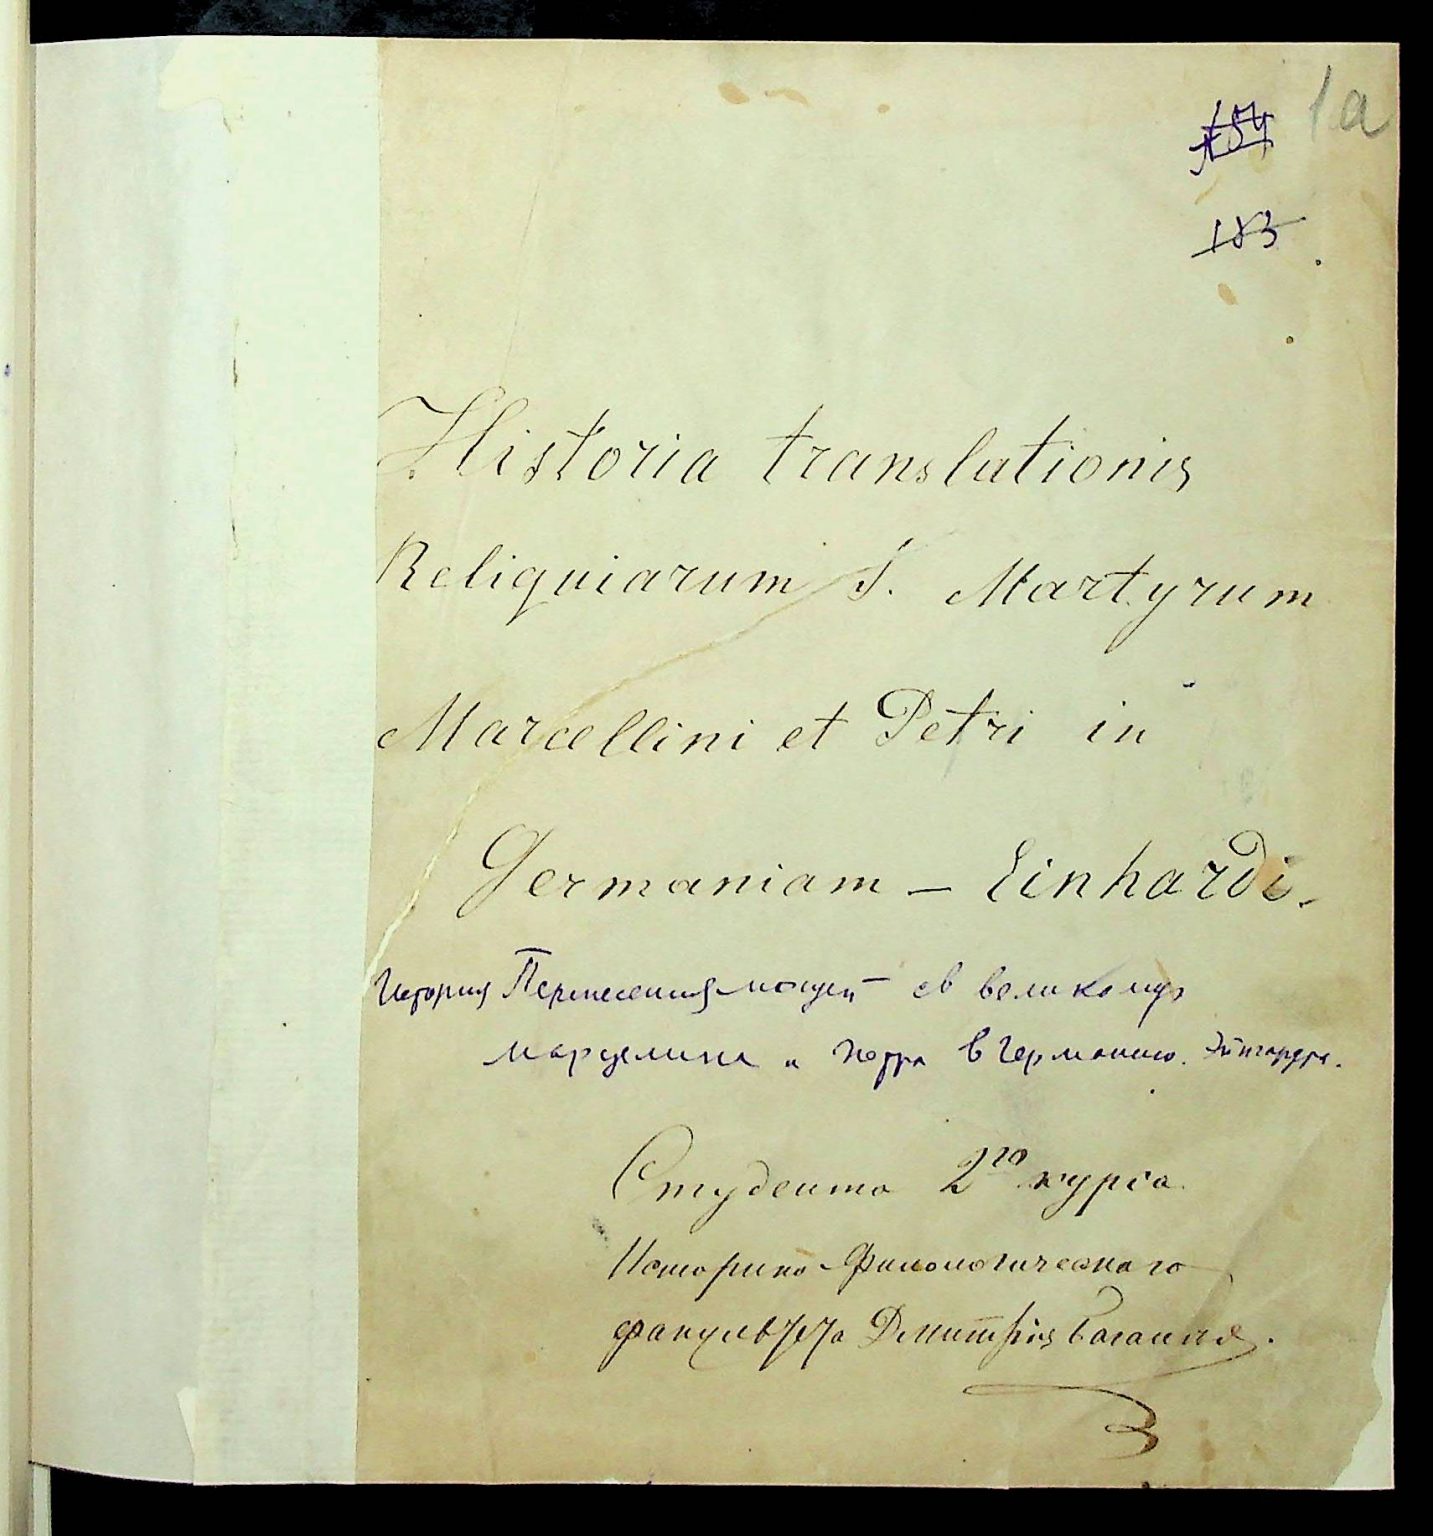 1а
154
183
Historia translationis
Reliquiarum S. Martyrum
Marcellini et Petri in
Germaniam – Einhardi.
История Перенесения мощей св великомуч
Марцелина и Петра в Германию. Эйнгарда.
Студента 2го курса
Историко-Филологическаго
факультета Дмитрія Багалѣя.